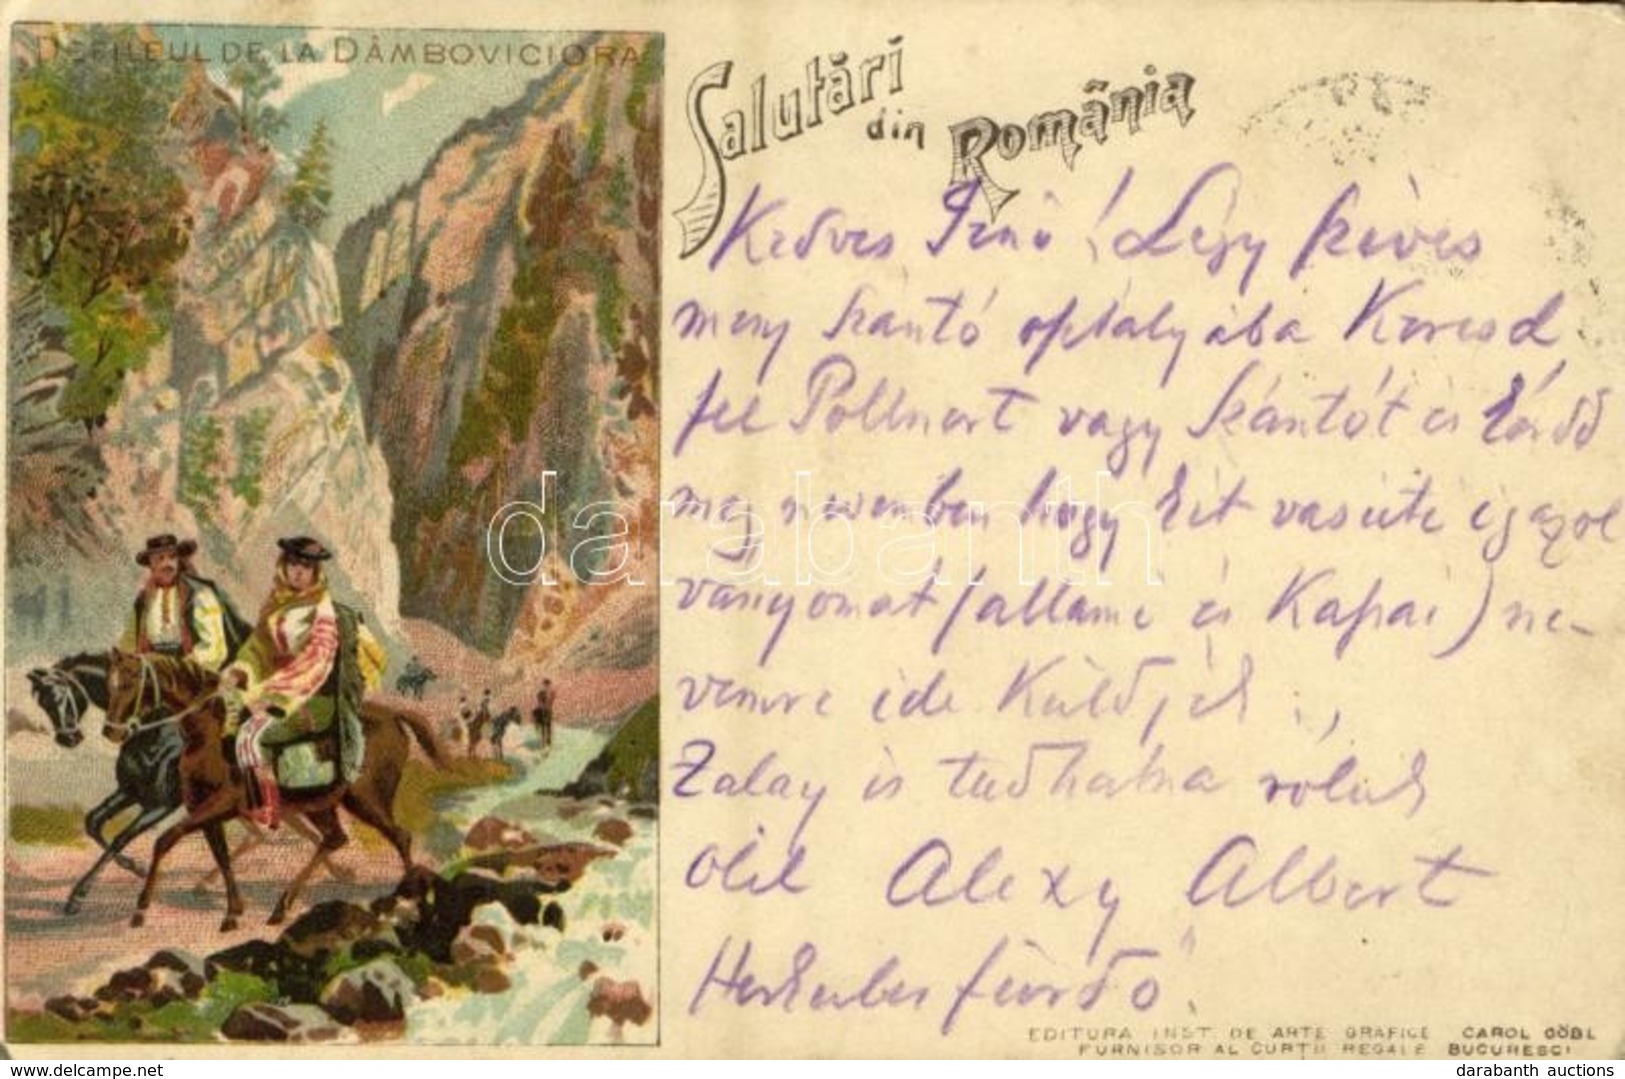 DEFILEUL DE LA DÂMBOVICIORA
Salutări
din România
Kedves Jenő! Légy szíves
meny Szántó optályába Keresd
fel Pollnert vagy Szántót és kérdd
meg nevemben hogy két vasúti igazol
ványomat (allami és Kassai) ne-
vemre ide Küldjék
Zalay is tudhatna róluk
ölel Alexy Albert
Herkules fürdő
EDITURA INST. DE ARTE GRAFICE CAROL GÖBL
FURNISOR AL CURTII REGALE BUCURESCI
darabanth
darabanth auctions
delcampe.net